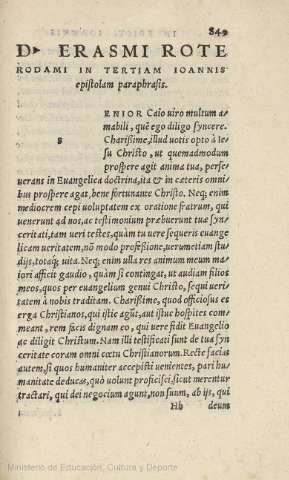 849
D▸ ERASMI ROTE
RODAMI IN TERTIAM IOANNIS
epistolam paraphrasis.
S ENIOR Caio uiro multum a⸗
mabili, quẽ ego diligo syncere.
Charißime, illud uotis opto à Ie⸗
su Christo, ut quemadmodum
prospere agit anima tua, perse⸗
uerans in Euangelica doctrina, ita & in cæteris omni⸗
bus prospere agat, bene fortunante Christo. Neq; enim
mediocrem cepi uoluptatem ex oratione fratrum, qui
uenerunt ad nos, ac testimonium præbuerunt tuæ syn⸗
ceritati, tam ueri testes, quàm tu uere sequeris euange
licam ueritatem, nõ modo profeßione, uerumetiam stu⸗
dijs, totaq; uita. Neq; enim ulla res animum meum ma⸗
iori afficit gaudio, quàm si contingat, ut audiam filios
meos, quos per euangelium genui Christo, sequi ueri⸗
tatem à nobis traditam. Charißime, quod officiosus es
erga Christianos, qui istic agũt, aut istuc hospites com⸗
meant, rem facis dignam eo, qui uere fidit Euangelio
ac diligit Christum. Nam illi testificati sunt de tua syn
ceritate coram omni cœtu Christianorum. Recte facias
autem, si quos humaniter accepisti uenientes, pari hu⸗
manitate deducas, quò uolunt proficisci, sicut merentur
tractari, qui dei negocium agunt, non suum, ab ijs, qui
Hh deum
Ministerio de Educación, Cultura y Deporte